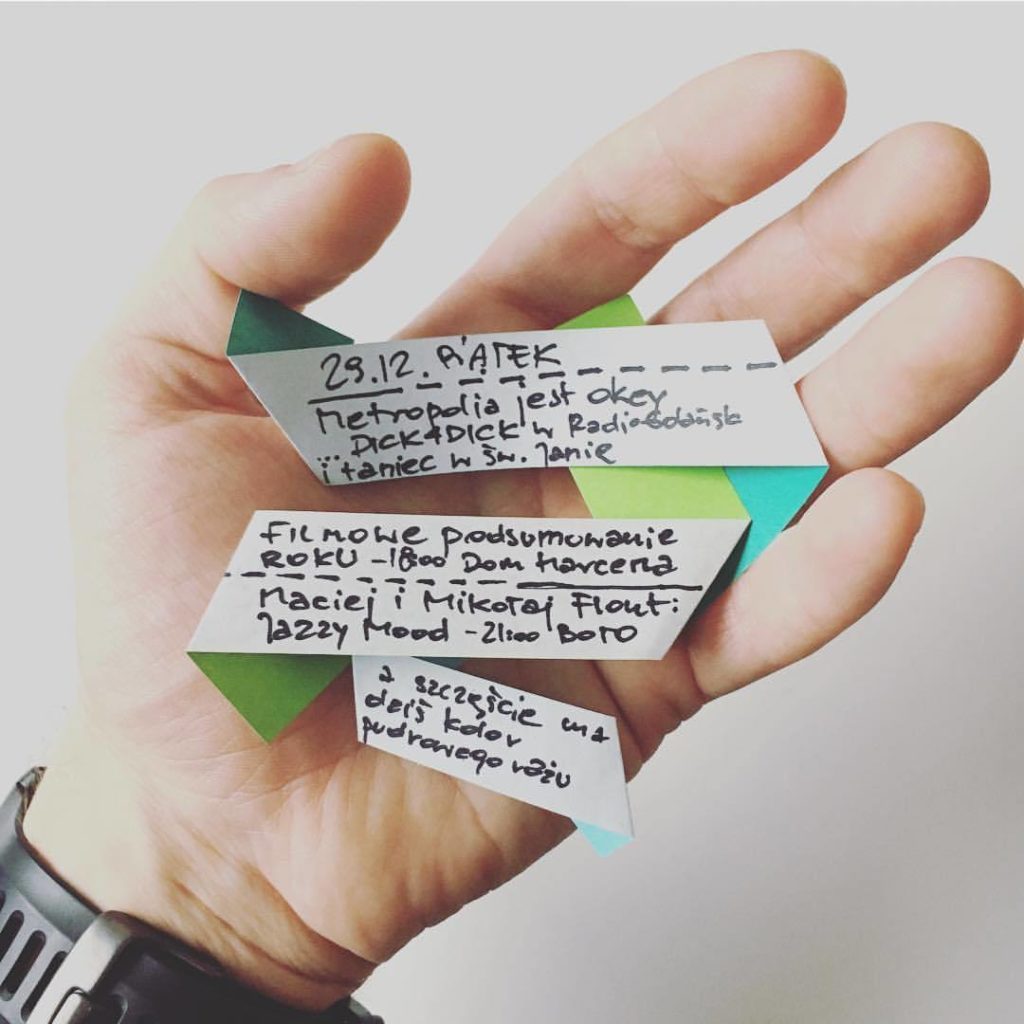 29.12. PIĄTEK
Metropolia jest okey
DICK4DICK w Radio Gdańsk
i taniec w św. Janie
Filmowe podsumowanie
ROKU - 18:00 Dom Harcerza
Maciej i Mikołaj Flont:
Jazzy Mood - 21:00 Boto
a szczęście ma
dziś kolor
pudrowego różu